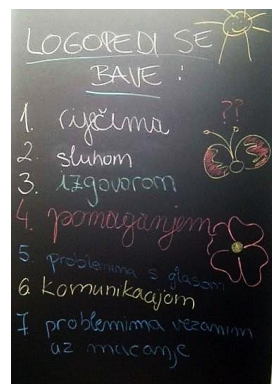 LOGOPEDI SE
BAVE :
??
1. riječima
2. sluhom
3. izgovorom
4. pomaganjem
5. problemima s glasom
6 komunikacijom
7 problemima vezanim
uz mucanje